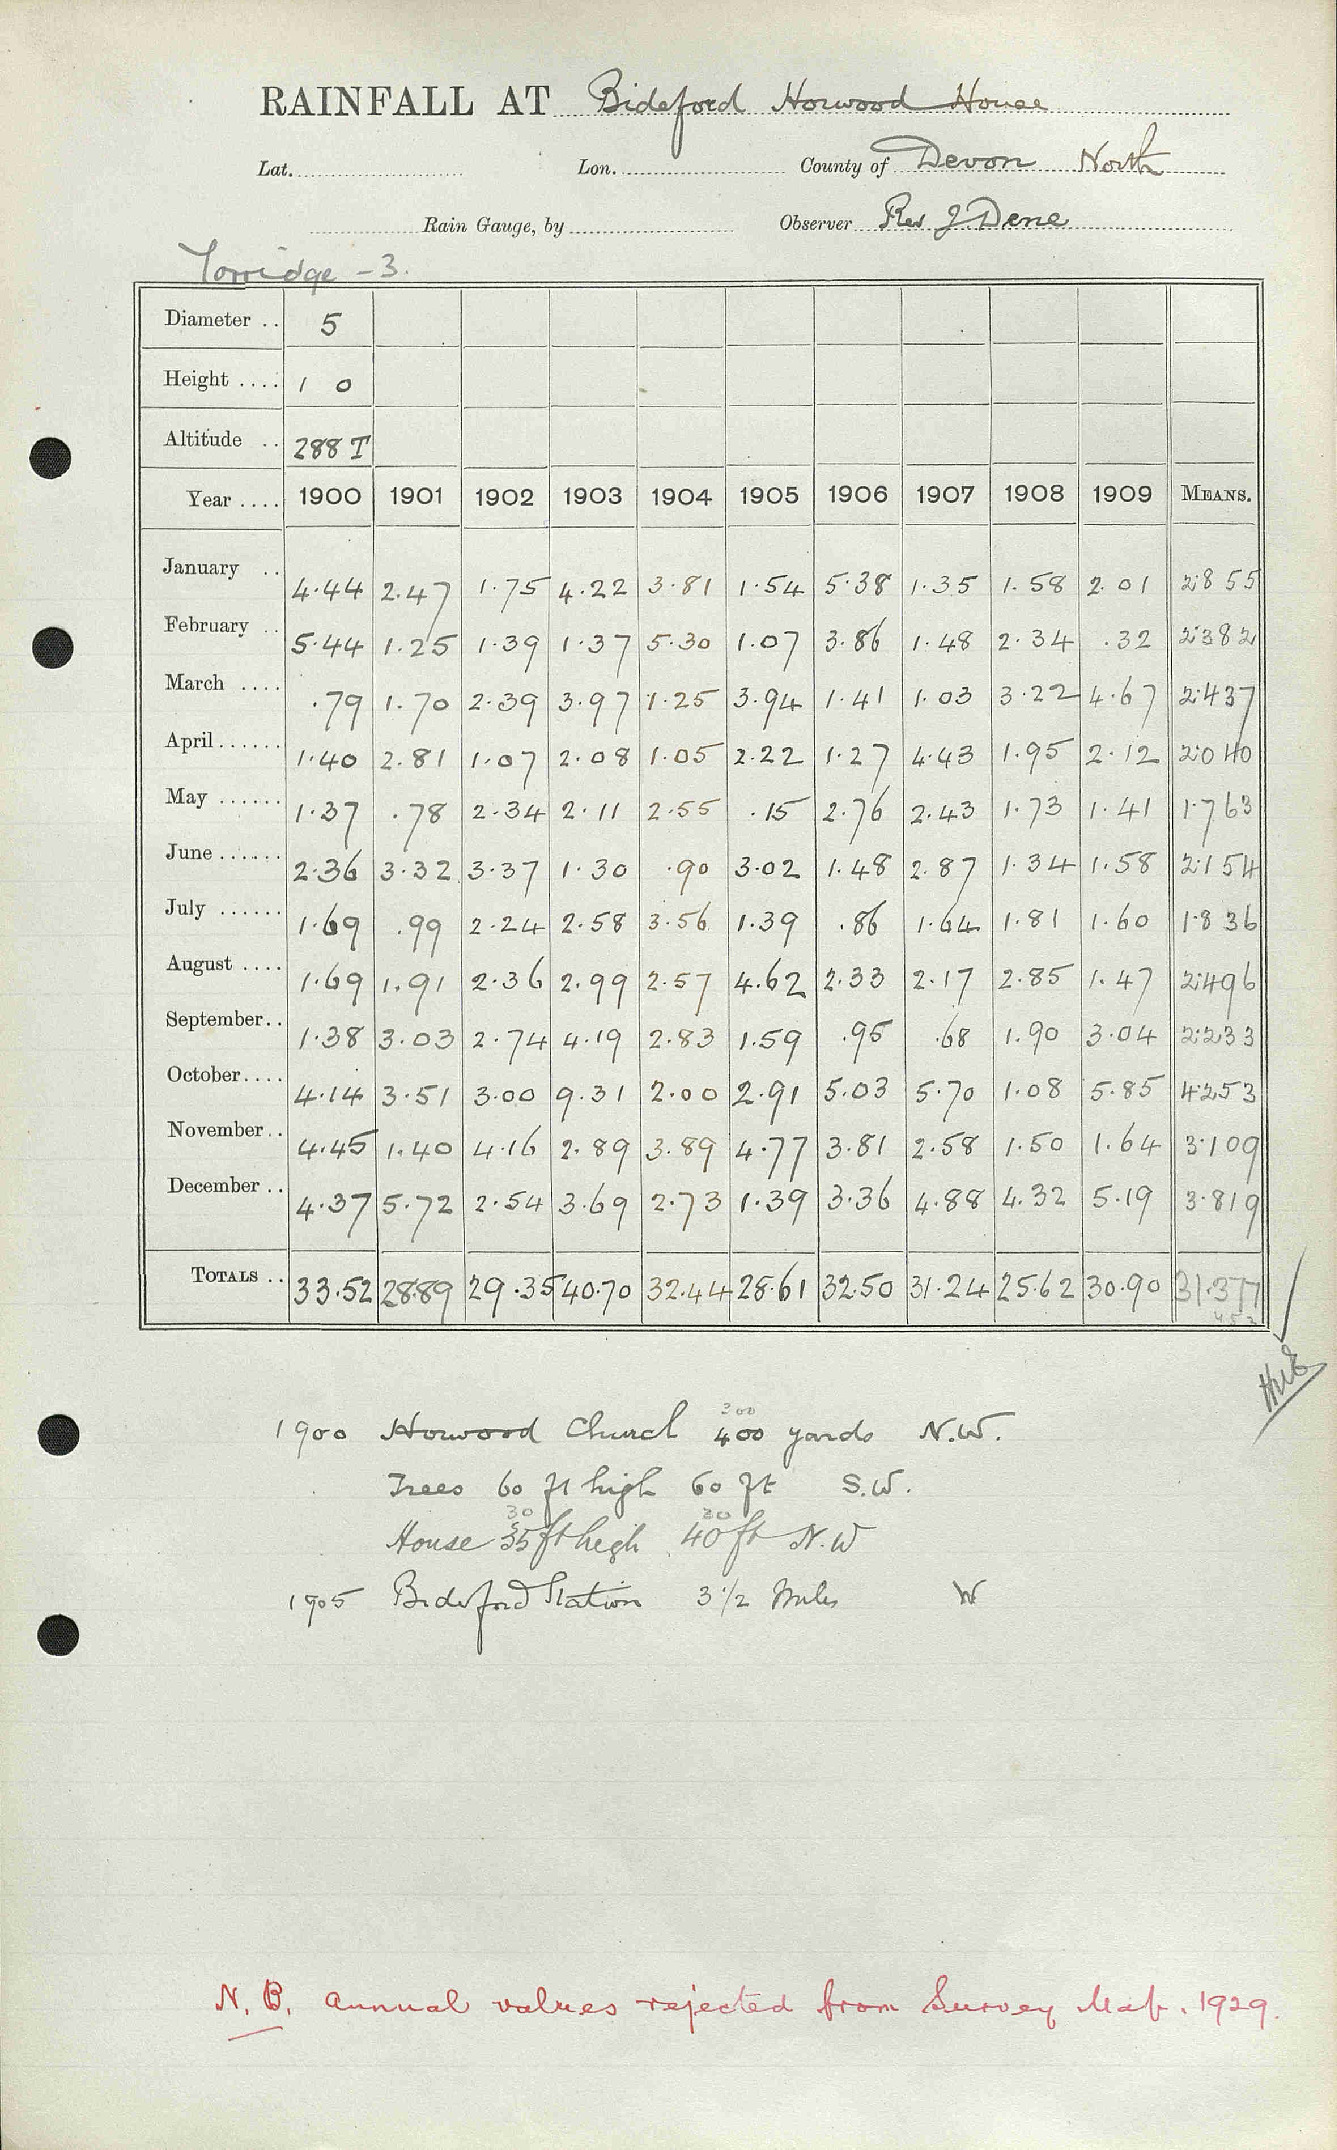 RAINFALL AT Bideford Horwood House
Lat. Lon. County of Devon North
Rain Gauge, by Observer Rev J Dene
Torridge - 3.
Diameter .. 5
Height .... 1 0
Altitude .. 288 T
Year .... 1900 1901 1902 1903 1904 1905 1906 1907 1908 1909 MEANS.
January .. 4.44 2.47 1.75 4.22 3.81 1.54 5.38 1.35 1.58 2.01 2.855
February .. 5.44 1.25 1.39 1.37 5.30 1.07 3.86 1.48 2.34 .32 2.382
March .... .79 1.70 2.39 3.97 1.25 3.94 1.41 1.03 3.22 4.67 2.437
April...... 1.40 2.81 1.07 2.08 1.05 2.22 1.27 4.43 1.95 2.12 2.040
May ...... 1.37 .78 2.34 2.11 2.55 .15 2.76 2.43 1.73 1.41 1.763
June ...... 2.36 3.32 3.37 1.30 .90 3.02 1.48 2.87 1.34 1.58 2.154
July ...... 1.69 .99 2.24 2.58 3.56 1.39 .86 1.64 1.81 1.60 1.836
August .... 1.69 1.91 2.36 2.99 2.57 4.62 2.33 2.17 2.85 1.47 2.496
September.. 1.38 3.03 2.74 4.19 2.83 1.59 .95 .68 1.90 3.04 2.233
October.... 4.14 3.51 3.00 9.31 2.00 2.91 5.03 5.70 1.08 5.85 4.253
November.. 4.45 1.40 4.16 2.89 3.89 4.77 3.81 2.58 1.50 1.64 3.109
December .. 4.37 5.72 2.54 3.69 2.73 1.39 3.36 4.88 4.32 5.19 3.819
TOTALS .. 33.52 28.89 29.35 40.70 32.44 28.61 32.50 31.24 25.62 30.90 31.377
300
1900 Horwood Church 400 yards N.W.
Trees 60 ft high 60 ft S.W.
30 30
House 35 ft high 40 ft N.W
1905 Bideford Station 3 1/2 Miles W
N.B. Annual values rejected from Survey Map. 1929.